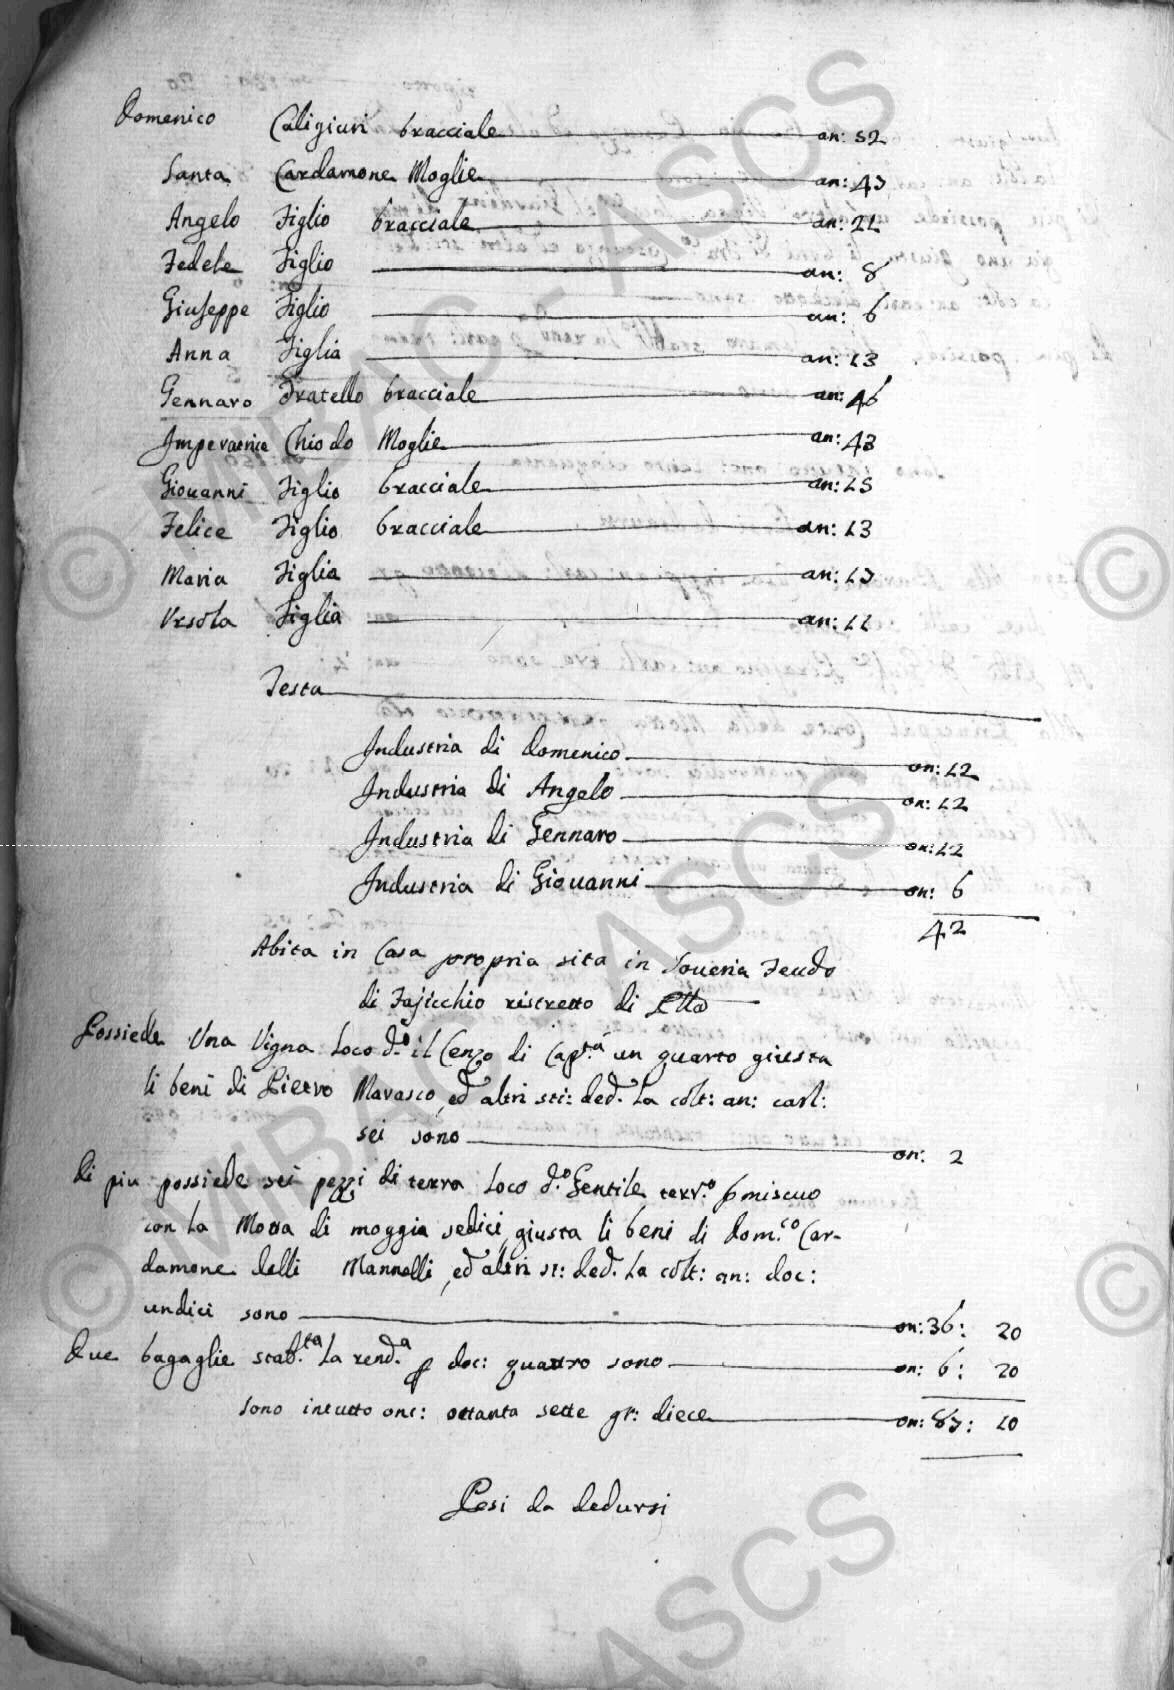 Domenico Caligiuri bracciale an: 52
Santa Cardamone Moglie an: 43
Angelo Figlio bracciale an: 21
Fedele Figlio an: 8
Giuseppe Figlio an: 6
Anna Figlia an: 13
Gennaro Fratello bracciale an: 46
Chiodo Moglie an: 43
Giovanni Figlio bracciale an: 15
Felice Figlio bracciale an: 13
Maria Figlia an: 13
Ursola Figlia an: 11
Testa
Industria di Domenico on: 12
Industria di Angelo on: 12
Industria di Gennaro on: 12
Industria di Giovanni on: 6
42
Abita in Casa propria sita in Soveria Feudo
di ristretto di
Possiede Una Vigna loco d.o il Cenzo di un quarto giusta
li beni di Pietro Marasco, ed altri sti: ded. la colt: an: carl:
sei sono on: 2
di piu possiede sei pezzi di terra loco d.o Gentile terr.o pmiscuo
con la Motta di moggia sedici, giusta li beni di Dom.co Car-
damone delli Mannelli, ed altri st: ded. la colt: an: doc:
undici sono on: 36: 20
Due bagaglie stab.ta la rend.a p doc: quattro sono on: 6: 20
Sono intutto onc: ottanta sette gr: diece on: 87: 10
Pesi da dedursi
© MiBAC - ASCS
© MiBAC - ASCS
© ASCS
©